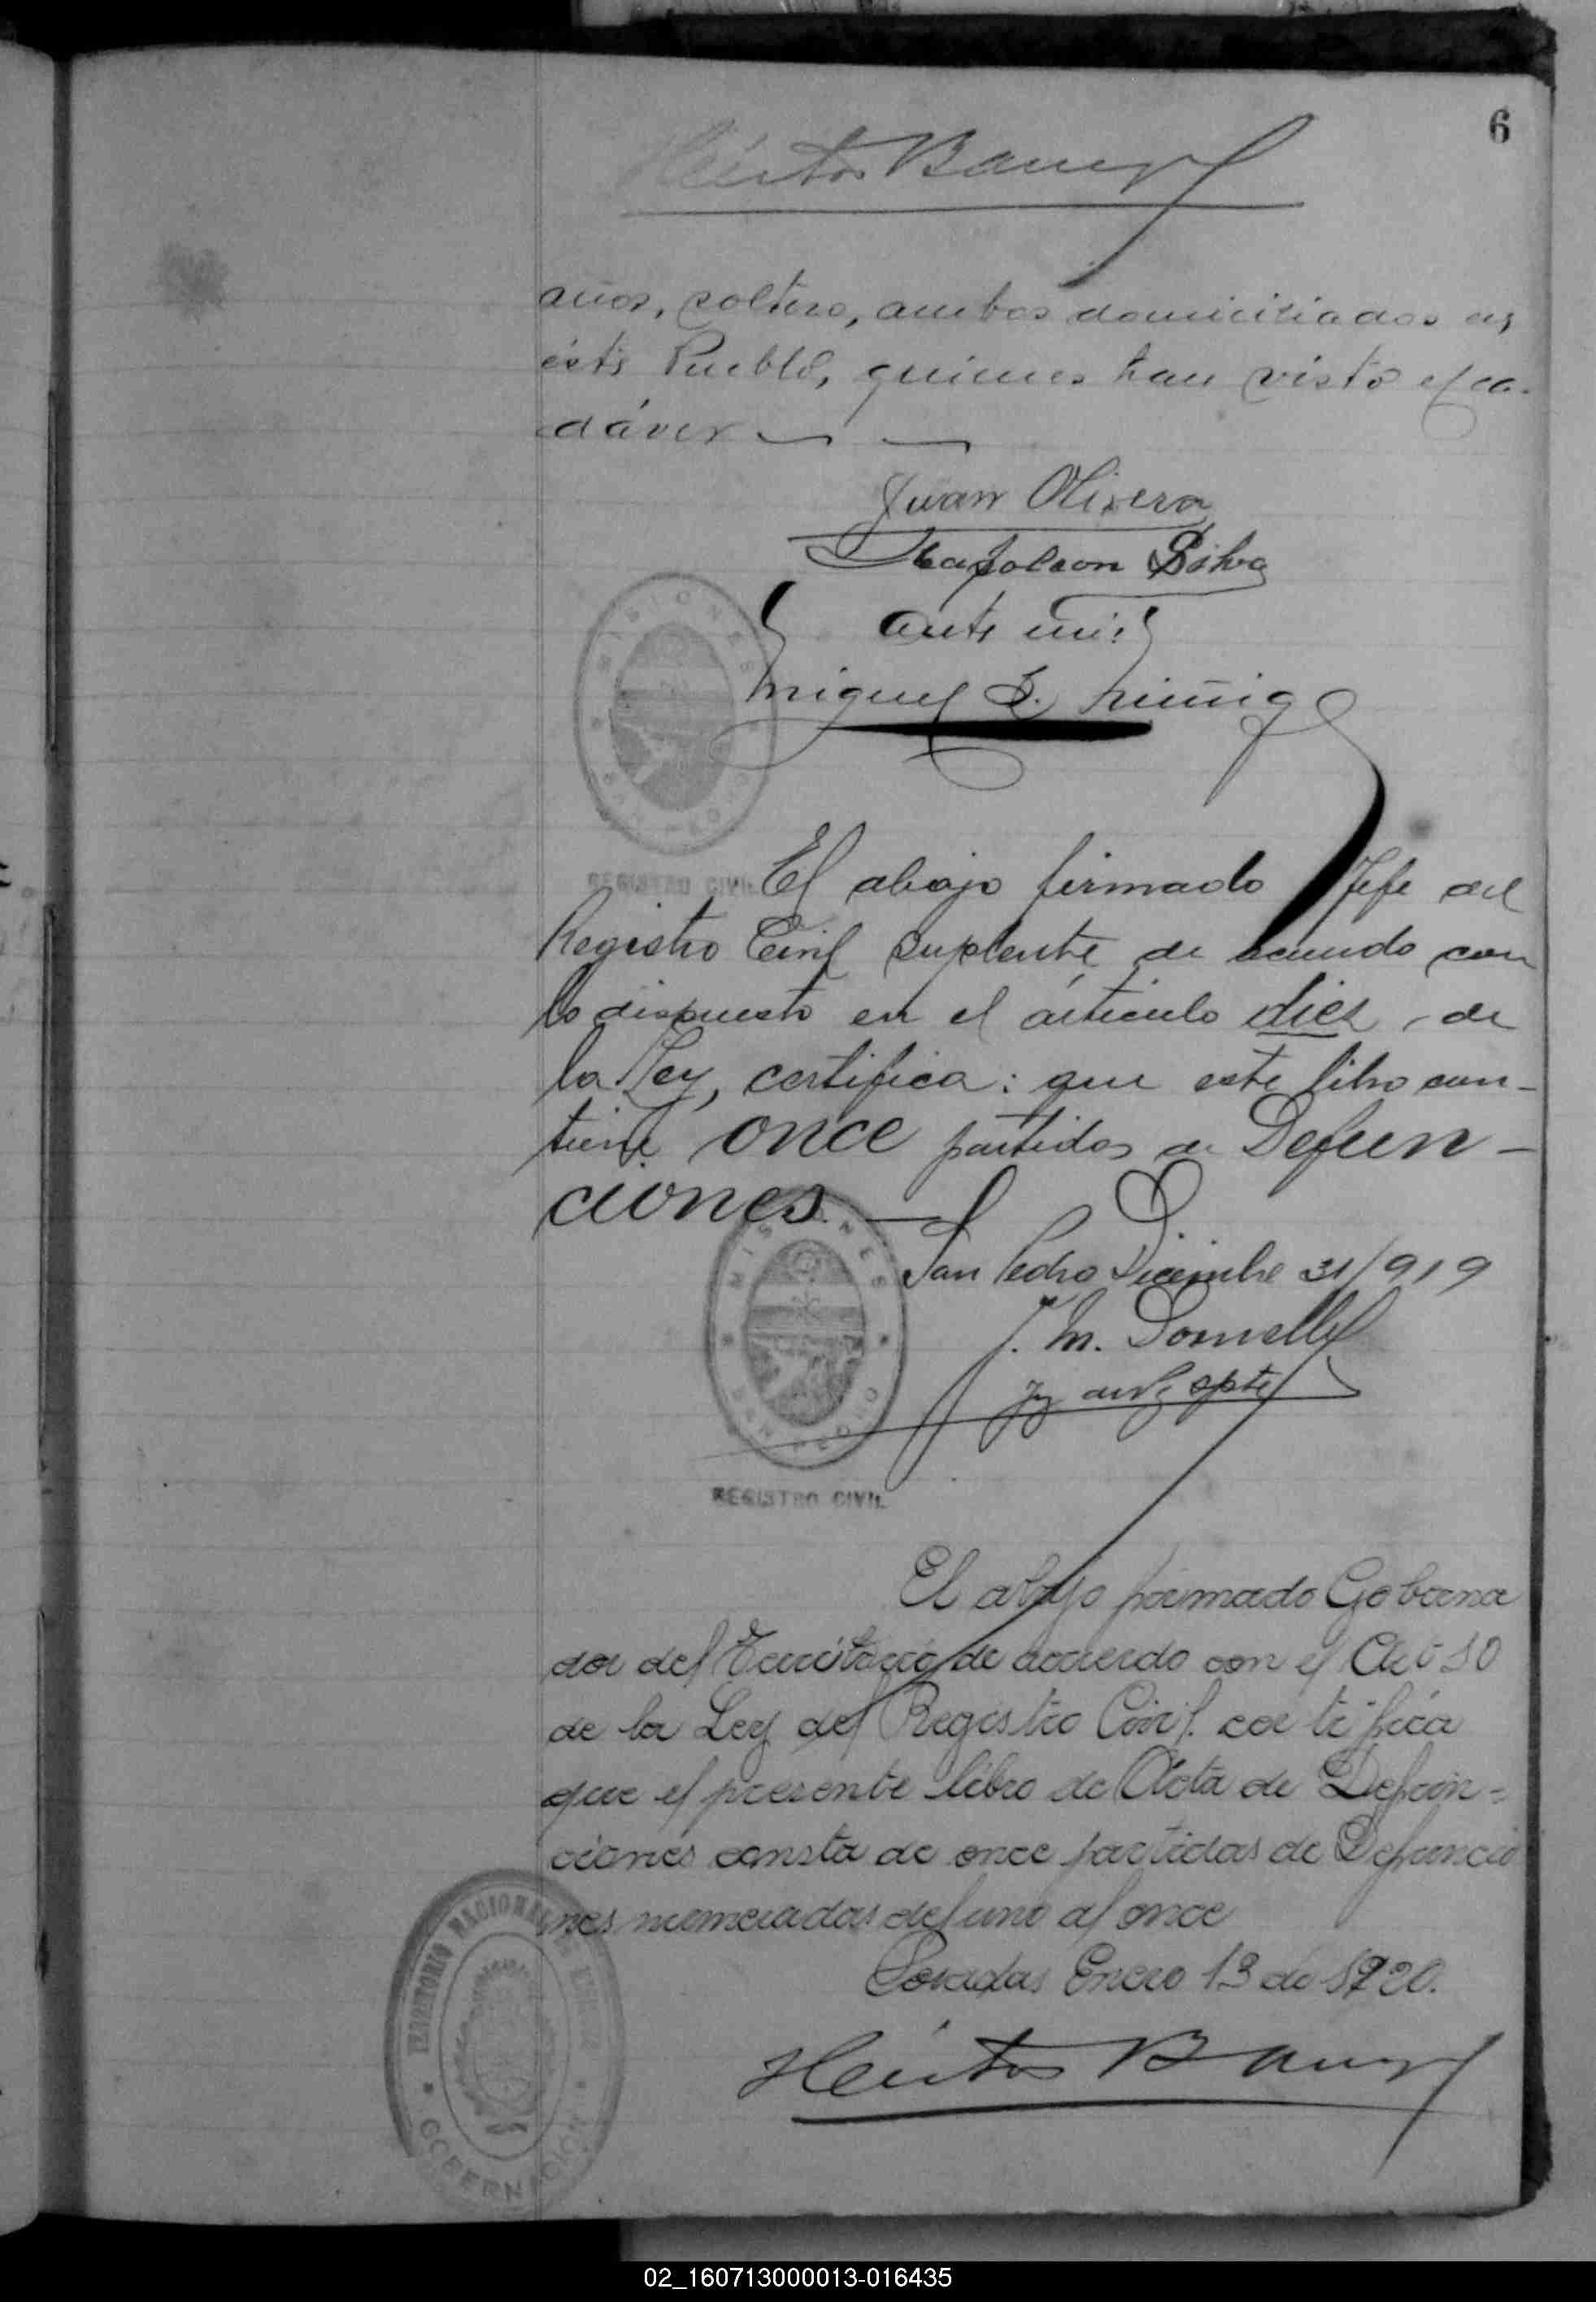 6
Héctor Barreyro
años, soltero, ambos domiciliados en
éste Pueblo, quienes han visto el ca-
dáver
Juan Olivera
Napoleon Silva
ante mi:
Miguel
MISIONES
REGISTRO CIVIL
El abajo firmado Jefe del
Registro Civil suplente de acuerdo con
lo dispuesto en el artículo diez, de
la Ley, certifica: que este libro con-
tiene once partidas de Defun-
ciones.
San Pedro Diciembre 31/919
J. M.
spte
MISIONES
REGISTRO CIVIL
El abajo firmado Goberna
dor del Territorio de acuerdo con el 10
de la Ley del Registro Civil. certifica
que el presente libro de Acta de Defun=
ciones consta de once partidas de Defuncio
nes numeradas del uno al once
Posadas Enero 13 de 1920.
TERRITORIO NACIONAL DE MISIONES
GOBERNACION
Héctor Barreyro
02_160713000013-016435